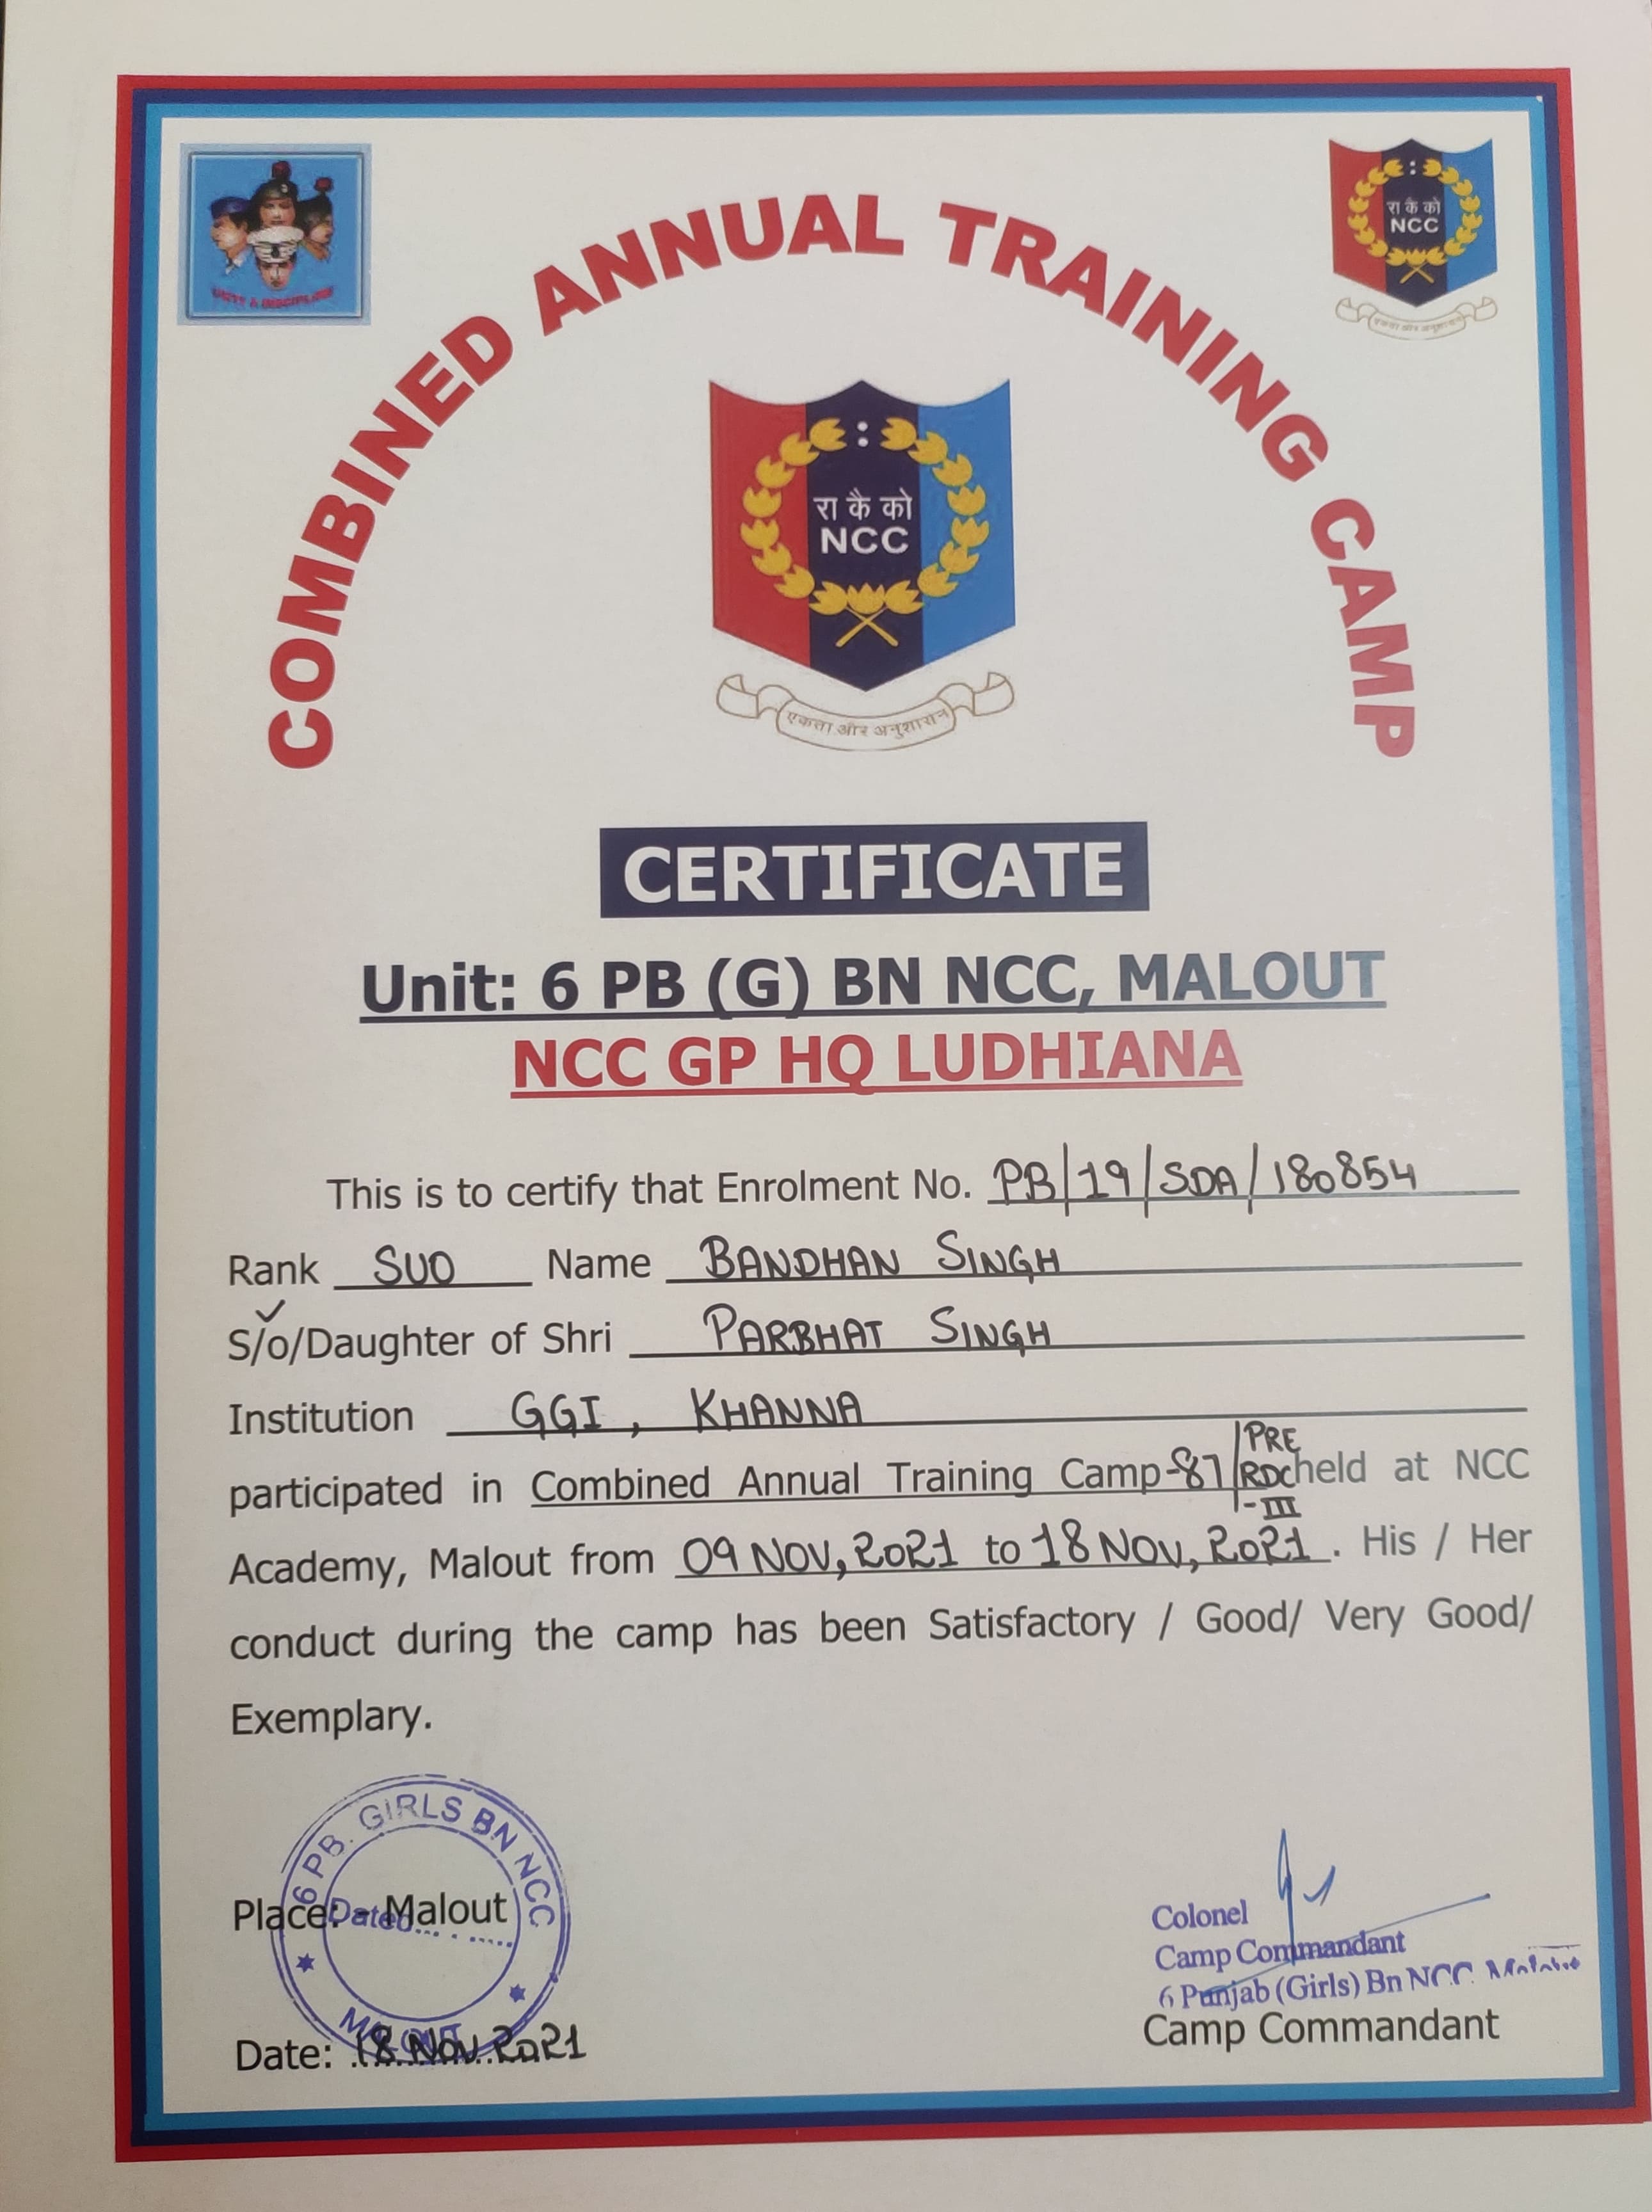 UNITY & DISCIPLINE
रा कै को
NCC
एकता और अनुशासन
COMBINED ANNUAL TRAINING CAMP
रा कै को
NCC
एकता और अनुशासन
CERTIFICATE
Unit: 6 PB (G) BN NCC, MALOUT
NCC GP HQ LUDHIANA
This is to certify that Enrolment No. PB/19/SDA/180854
Rank SUO Name BANDHAN SINGH
S/o/Daughter of Shri PARBHAT SINGH
Institution GGI, KHANNA
participated in Combined Annual Training Camp-87/PRE RDC-III held at NCC
Academy, Malout from 09 NOV, 2021 to 18 NOV, 2021. His / Her
conduct during the camp has been Satisfactory / Good/ Very Good/
Exemplary.
6 PB. GIRLS BN NCC
Dated........
MALOUT
Place: - Malout
Date: 18 Nov 2021
Colonel
Camp Commandant
6 Punjab (Girls) Bn NCC
Camp Commandant